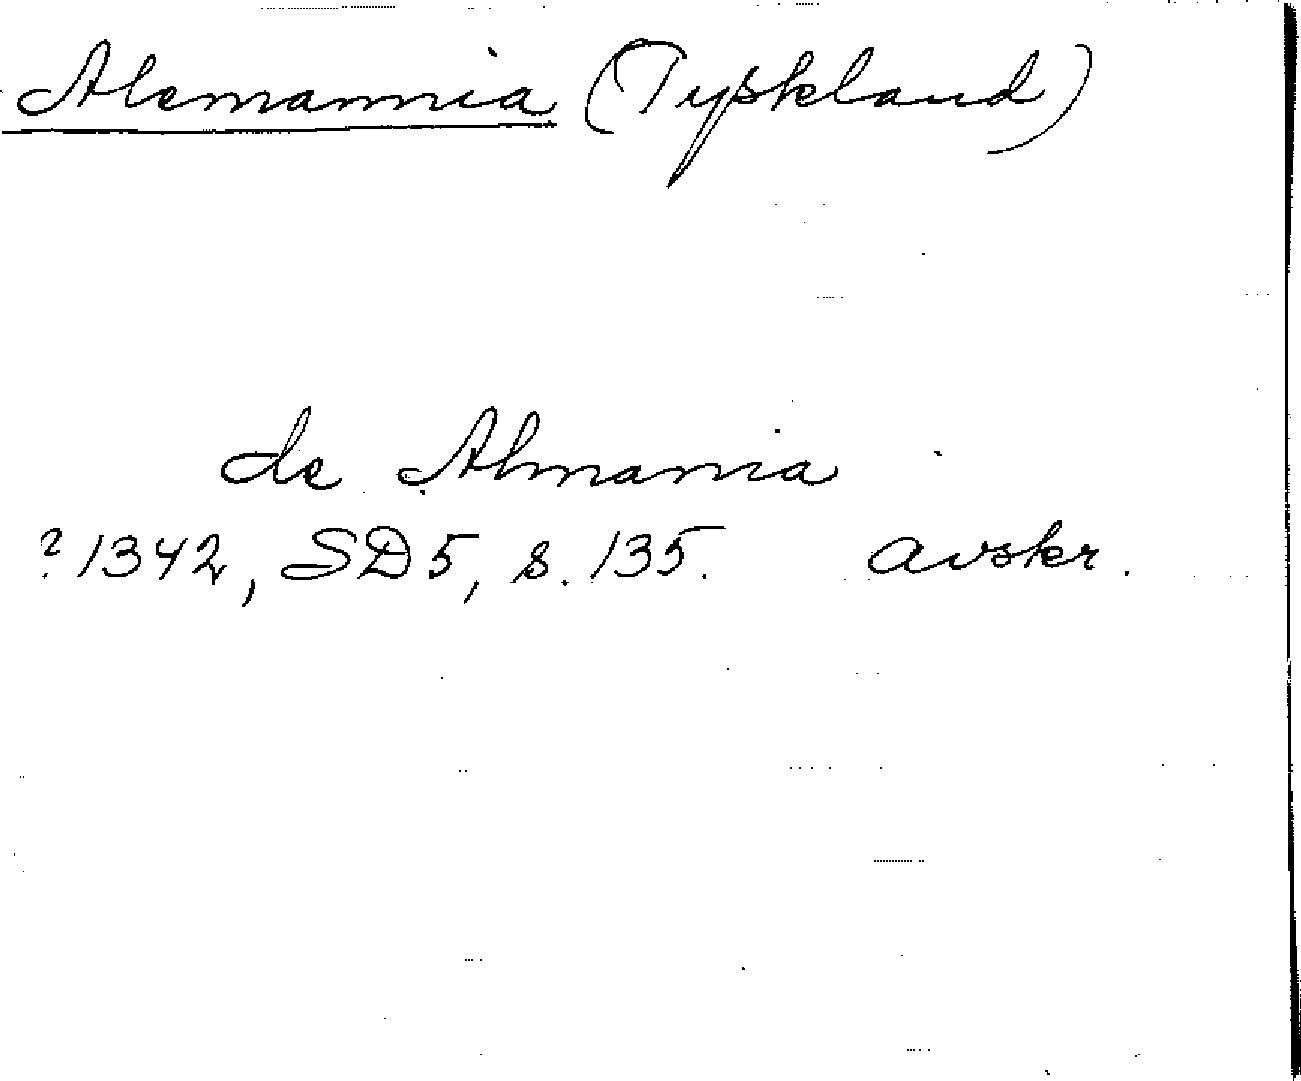 Alemannia (Tyskland)
de Almania
? 1342, SD5, s. 135. avskr.